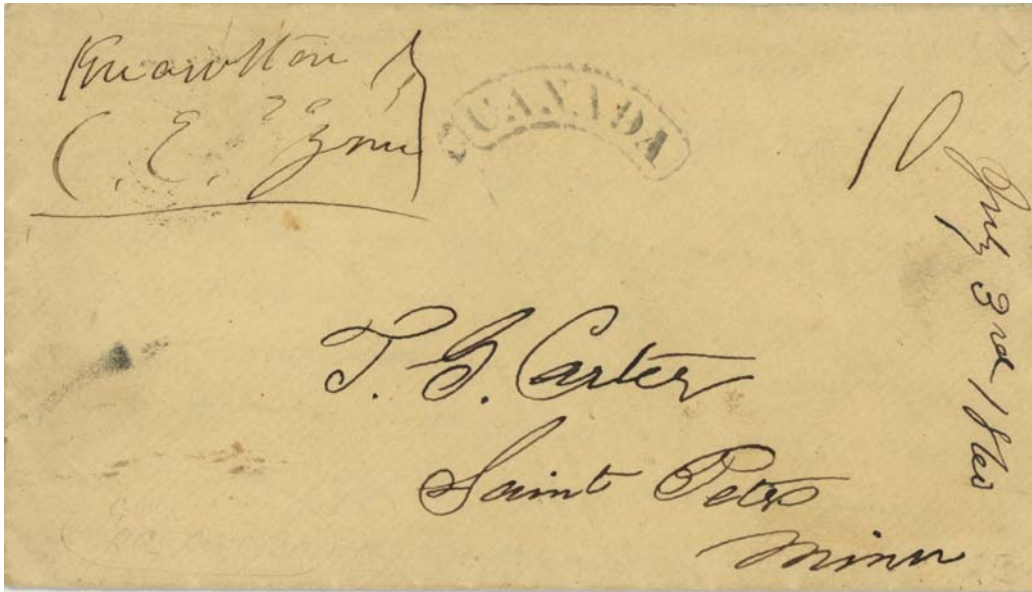 Knowlton
C. E.
CANADA
10
July 3rd 1860
T. G. Carter
Saint Peter
Minn